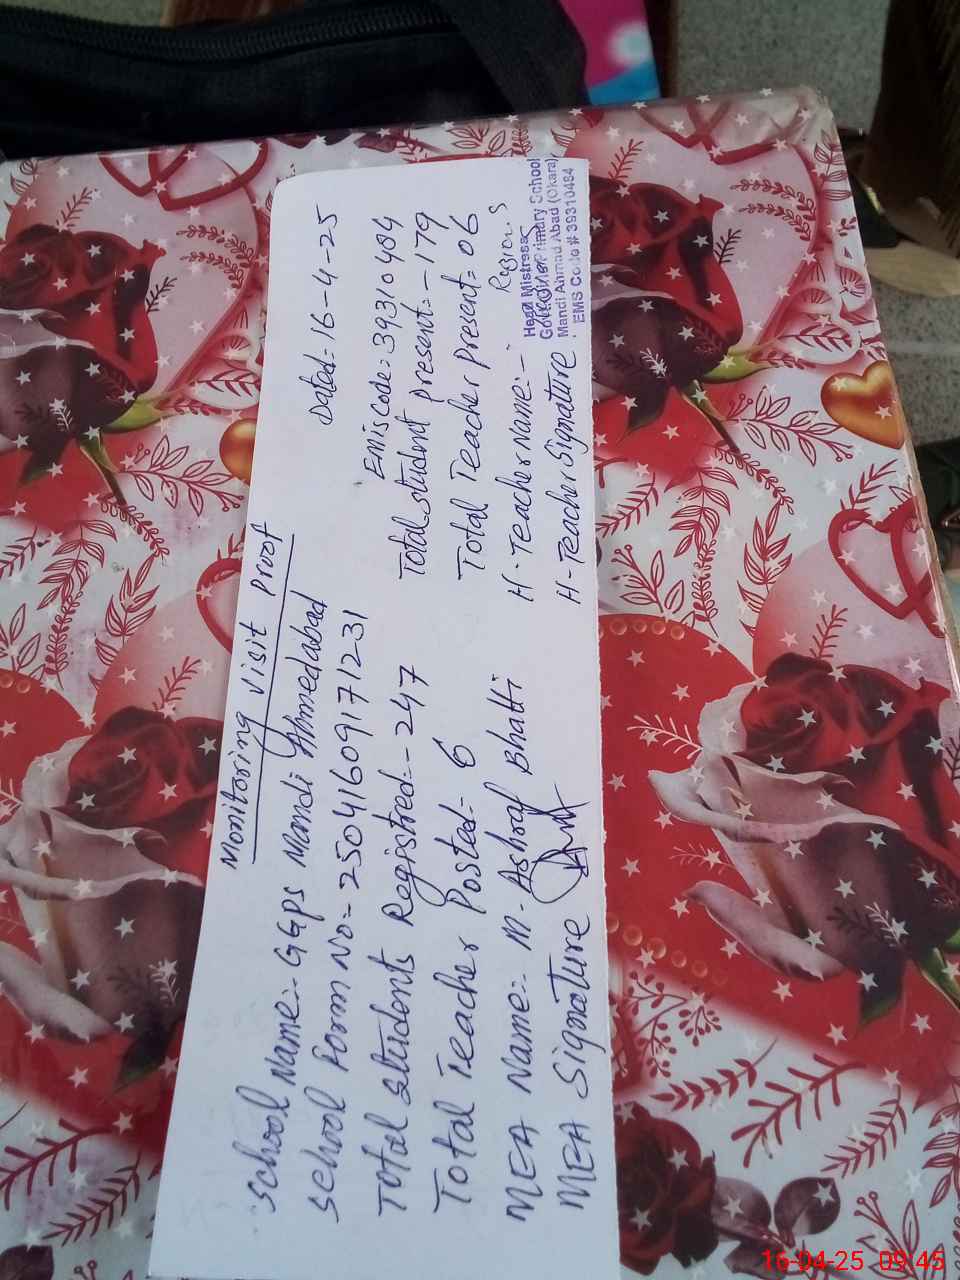 Monitoring Visit Proof
Dated:- 16-4-25
School Name:- GGPS Mandi Ahmedabad
EMIS code:- 39310484
School Form No:- 25041609171231
Total student present:- 179
Total students Registred:- 247
Total Teacher present:- 06
Total Teacher Posted:- 6
H-Teacher Name:-
MEA Name:- M. Ashraf Bhatti
H-Teacher Signature
MEA Signature
Head Mistress
Govt. Primary School
Mandi Ahmad Abad (Okara)
EMS Code # 39310484
16-04-25 09:45